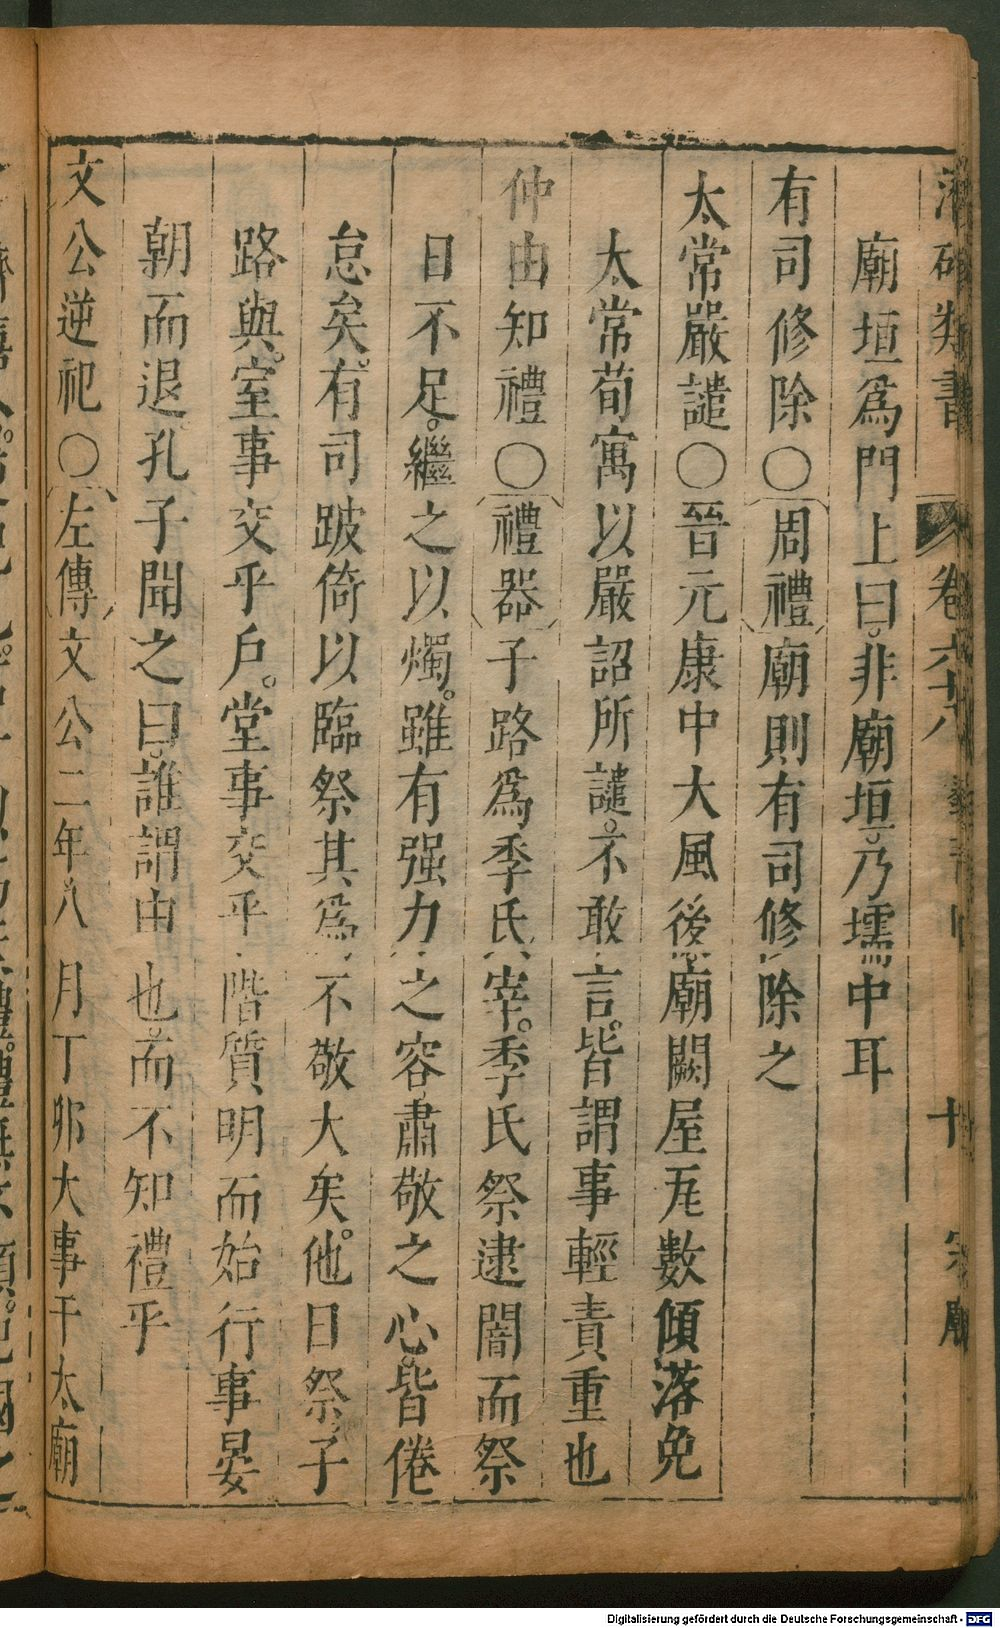 類書 卷六十八 十 宗廟
廟垣爲門上曰非廟垣乃壖中耳
有司修除〇周禮廟則有司修除之
太常嚴譴〇晉元康中大風後廟闕屋瓦數傾落免
太常荀寓以嚴詔所譴不敢言皆謂事輕責重也
仲由知禮〇禮器子路爲季氏宰季氏祭逮闇而祭
日不足繼之以燭雖有强力之容肅敬之心皆倦
怠矣有司跛倚以臨祭其爲不敬大矣他日祭子
路與室事交乎戶堂事交乎階質明而始行事晏
朝而退孔子聞之曰誰謂由也而不知禮乎
文公逆祀〇左傳文公二年八月丁卯大事于太廟
Digitalisierung gefördert durch die Deutsche Forschungsgemeinschaft - DFG